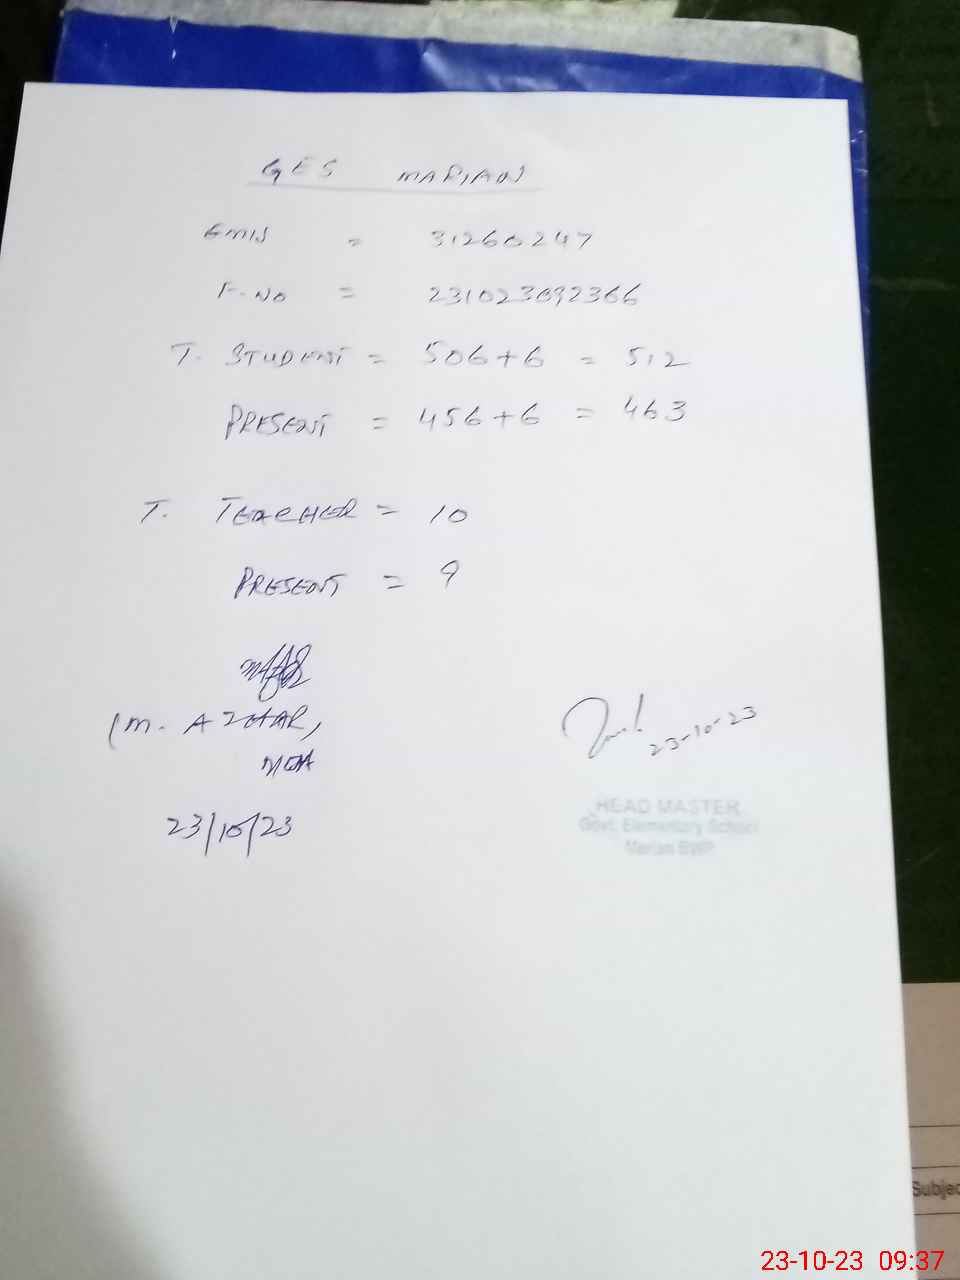 GES MARIAN
EMIS = 31260247
F.NO = 231023092366
T. STUDENT = 506+6 = 512
PRESENT = 456+6 = 463
T. TEACHER = 10
PRESENT = 9
(M. AZHAR,
MEA
23/10/23
23-10-23
HEAD MASTER
Govt. Elementary School
Marian BWP
Subjec
23-10-23 09:37